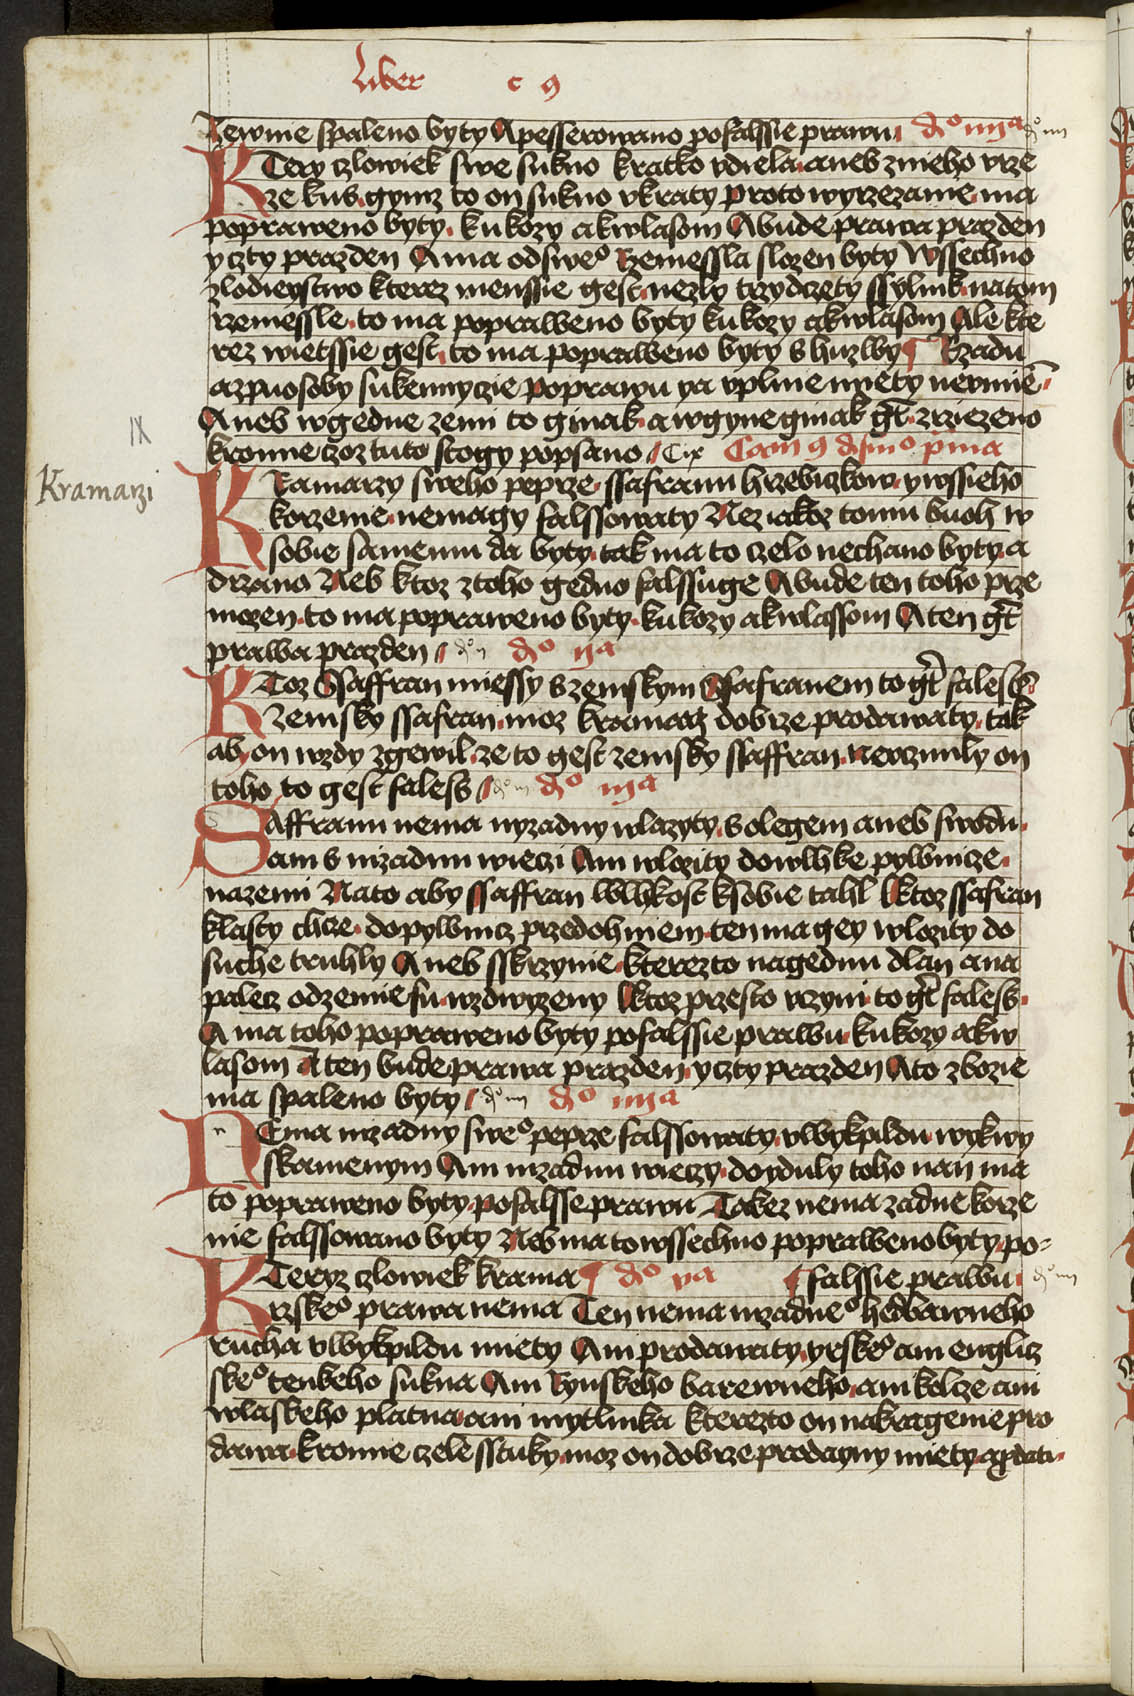 Liber c 9
Zewnie spaleno byty A pesserowano po falssie prawu d͞o iiij͞a d͞o iiij
KTery czlowiek swe sukno kratko vdiela aneb z nieho vrze
ze kus gymz to on sukno vkraty proto wyrzezanie ma
popraweno byty kukozy akwlasom A bude prawa prazden
y czty prazden A ma od sweo rzemessla slozen byty Wssechno
zlodieystwo kterez menssie gest nezly trzydczety ssylink natom
rzemessle to ma popraweno byty kukozy akwlasom Ale kte
rez wietssie gest to ma popraweno byty s huzby Rzadu
azpuosoby sukennyczie poprawu ya vplnie miety neymie͞
Aneb w gedne zemi to ginak a w gyne ginak g͞t zrziezeno
kromie czoz tuto stogy popsano C ix Cam 9 di͞sti͞o p͞ma
IX
Kramarzi
KRamarzy sweho peprze ssafranu hrzebiczkow y wssieho
korzenie nemagy falssowaty Nez iakoz tomu buoh w
sobie samemu da byty tak ma to czelo nechano byty a
drzano Neb ktoz z toho gedno falssuge A bude ten toho prze
mozen to ma popraweno byty kukozy akwlassom A ten g͞t
prawa prazden d͞o ij d͞o ij͞a
KToz Ssaffran miessy s zemskym Ssafranem to g͞t faless
Zemsky ssafran moz kramarz dobrze prodawaty tak
aby on wzdy zgewil ze to gest zemsky ssaffran Neuczinily on
toho to gest faless d͞o iij d͞o iij͞a
SAffranu nema nyzadny wlazyty s olegem aneb s wodu
Sam s nizadnu wieczi Ani wlozity do wlhke pywnicze
na zemi Na to aby ssaffran wlhkost k sobie tahl Ktoz ssafran
klasty chcze do pywnicz przed ohniem ten ma gey wlozity do
suche truhly Aneb sskrzynie kterezto na gednu dlan a na
palecz od zemie su wzdwyzeny Ktoz przesto vczyni to g͞t faless
A ma toho popraweno byty po falssie prawu kukozy akw
lasom A ten bude prawa prazden y czty prazden A to zbozie
ma spaleno byty d͞o iiij d͞o iiij͞a
NEma nizadny sweo peprze falssowaty v wykpildu wykwy
skamenym Ani nizadnu wieczy doyduly toho nan ma
to popraweno byty po falsse prawu Takez nema zadne korze
nie falssowano byty Neb ma to wssechno popraweno byty po
KTeryz czlowiek krama d͞o v͞a falssie prawu d͞o iiij
rzskeo prawa nema Ten nema nizadneo hedbawneho
rucha v wykpildu miety Ani prodawaty yeskeo ani englicz
skeo tenkeho sukna Ani Rynskeho barewneho ani kolcze ani
wlaskeho platna ani mytlinka kterezto on nakragenie pro
dawa kromie czele sstuky moz on dobrze prodayny miety a prodati